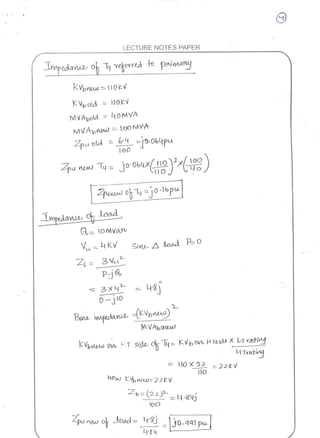 4
LECTURE NOTES PAPER
Impedance of T4 referred to primary
KVbnew = 110KV
KVbold = 110KV
MVAbold = 40MVA
MVAbnew = 100MVA
Zpu old = 6.4/100 = j0.064pu
Zpu new T4 = j0.064 x (110/110)² x (100/40)
Zpunew of T4 = j0.16pu
Impedance of load
Q = 10MVar
VLL = 4KV Since Δ load P=0
ZL = 3VLL²/P-jQ
= 3x4²/0-j10 = 4.8j
Base impedance = (KVbnew)²/MVAbnew
KVbnew on LT side of T4 = KVb on HT side x LT rating/HT rating
= 110 x 22/110 = 22KV
now KVbnew = 22KV
Zb = (22)²/100 = 4.84j
Zpu new of load = 4.8j/4.84 = j0.991 pu